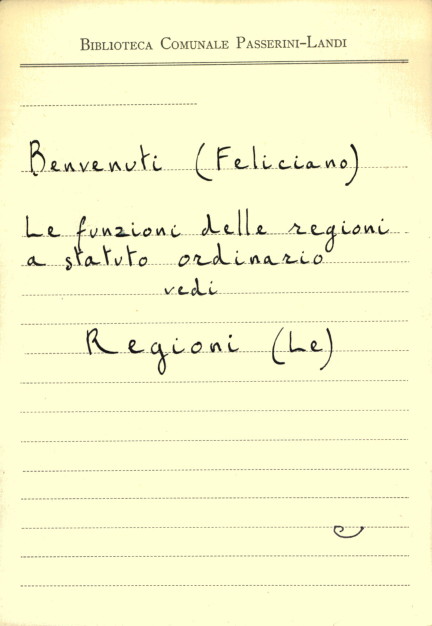 Biblioteca Comunale Passerini-Landi
Benvenuti (Feliciano)
Le funzioni delle regioni
a statuto ordinario
vedi
Regioni (Le)